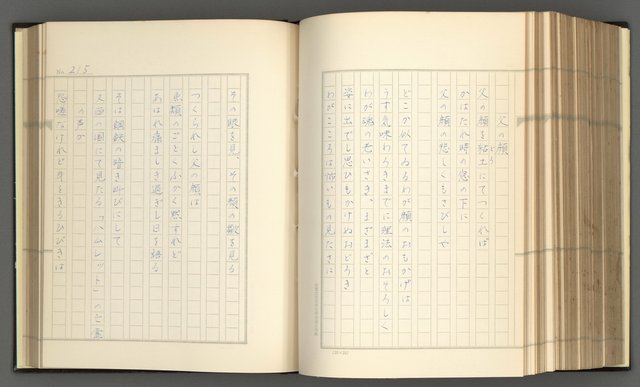 父の顔
父の顔を粘土にてつくれば
どろ
かはたれ時の窓の下に
父の顔の悲しくもさびしや
どこか似てゐるわが顔のおもかげは
うす気味わろきまでに理法のおそろしく
わが魂の老いさき、まざまざと
姿に出でし思ひもかけぬおどろき
わがこころは怖いもの見たさに
その眼を見、その額の皺を見る
つくられし父の顔は
魚類のごとくふかく黙すれど
あはれ痛ましき過ぎし日を語る
そは鋼鉄の暗き叫びにして
又西の国にて見たる「ハムレット」の亡霊
の声か
怨嗟なけれど身をきるひびきは
No. 215